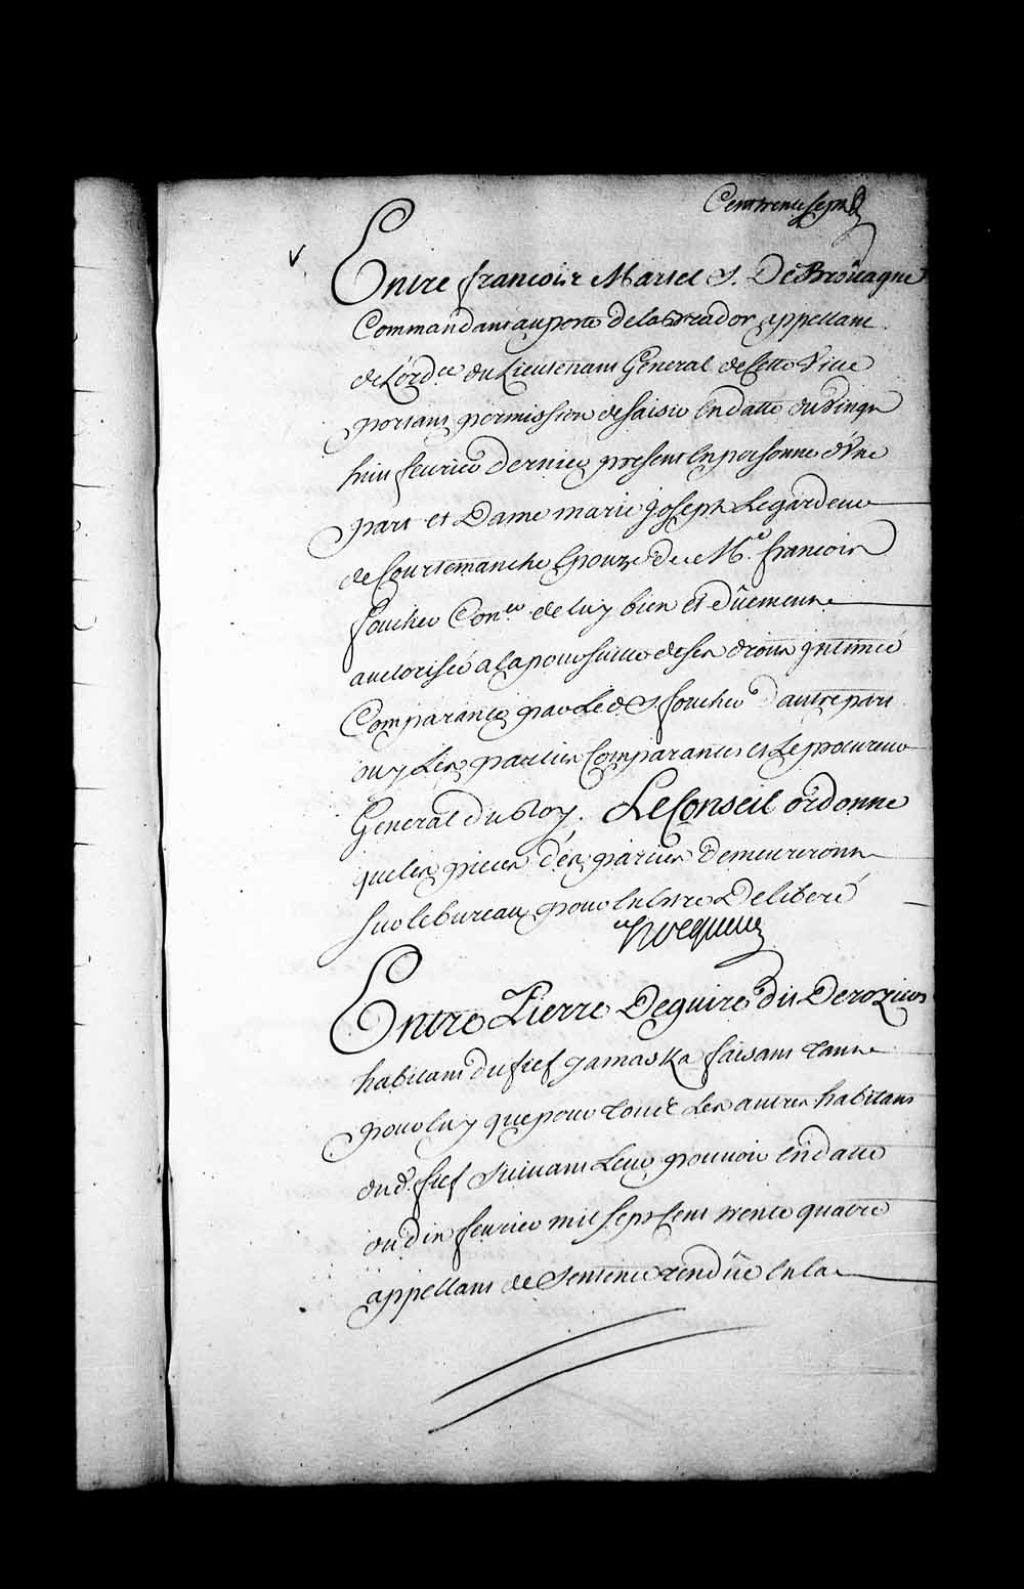 Cent trente sept
Entre francois Martel S. De Broüague
Commandant au poste de labrador appellant
de L'ord.ce du Lieutenant General de Cette Ville
portant permission de saisir En datte du Vingt
huit fevrier dernier present En personne d'Une
part et Dame marie joseph Legardeur
de Courtemanche Epouze de M.e francois
foucher Con.er de luy bien et düement
auctorisée a la poursuitte de ses droits intimée
Comparante par Led. S. foucher d'autre part
ouy Les parties Comparantes et Le procureur
General du Roy. Le Conseil ordonne
que les pieces des parties demeureront
sur le bureau pour En Estre Deliberé
Hocquart
Entre Pierre Deguire dit Deroziers
habitant du fief yamaska faisant tant
pour luy que pour tous Les autres habitans
dud. fief suivant Leur pouvoir En datte
du dix fevrier mil sept Cent trente quatre
appellant de Sentence rendüe En la